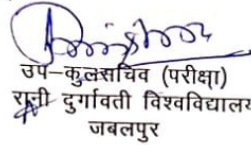 उप-कुलसचिव (परीक्षा)
रानी दुर्गावती विश्वविद्यालय
जबलपुर